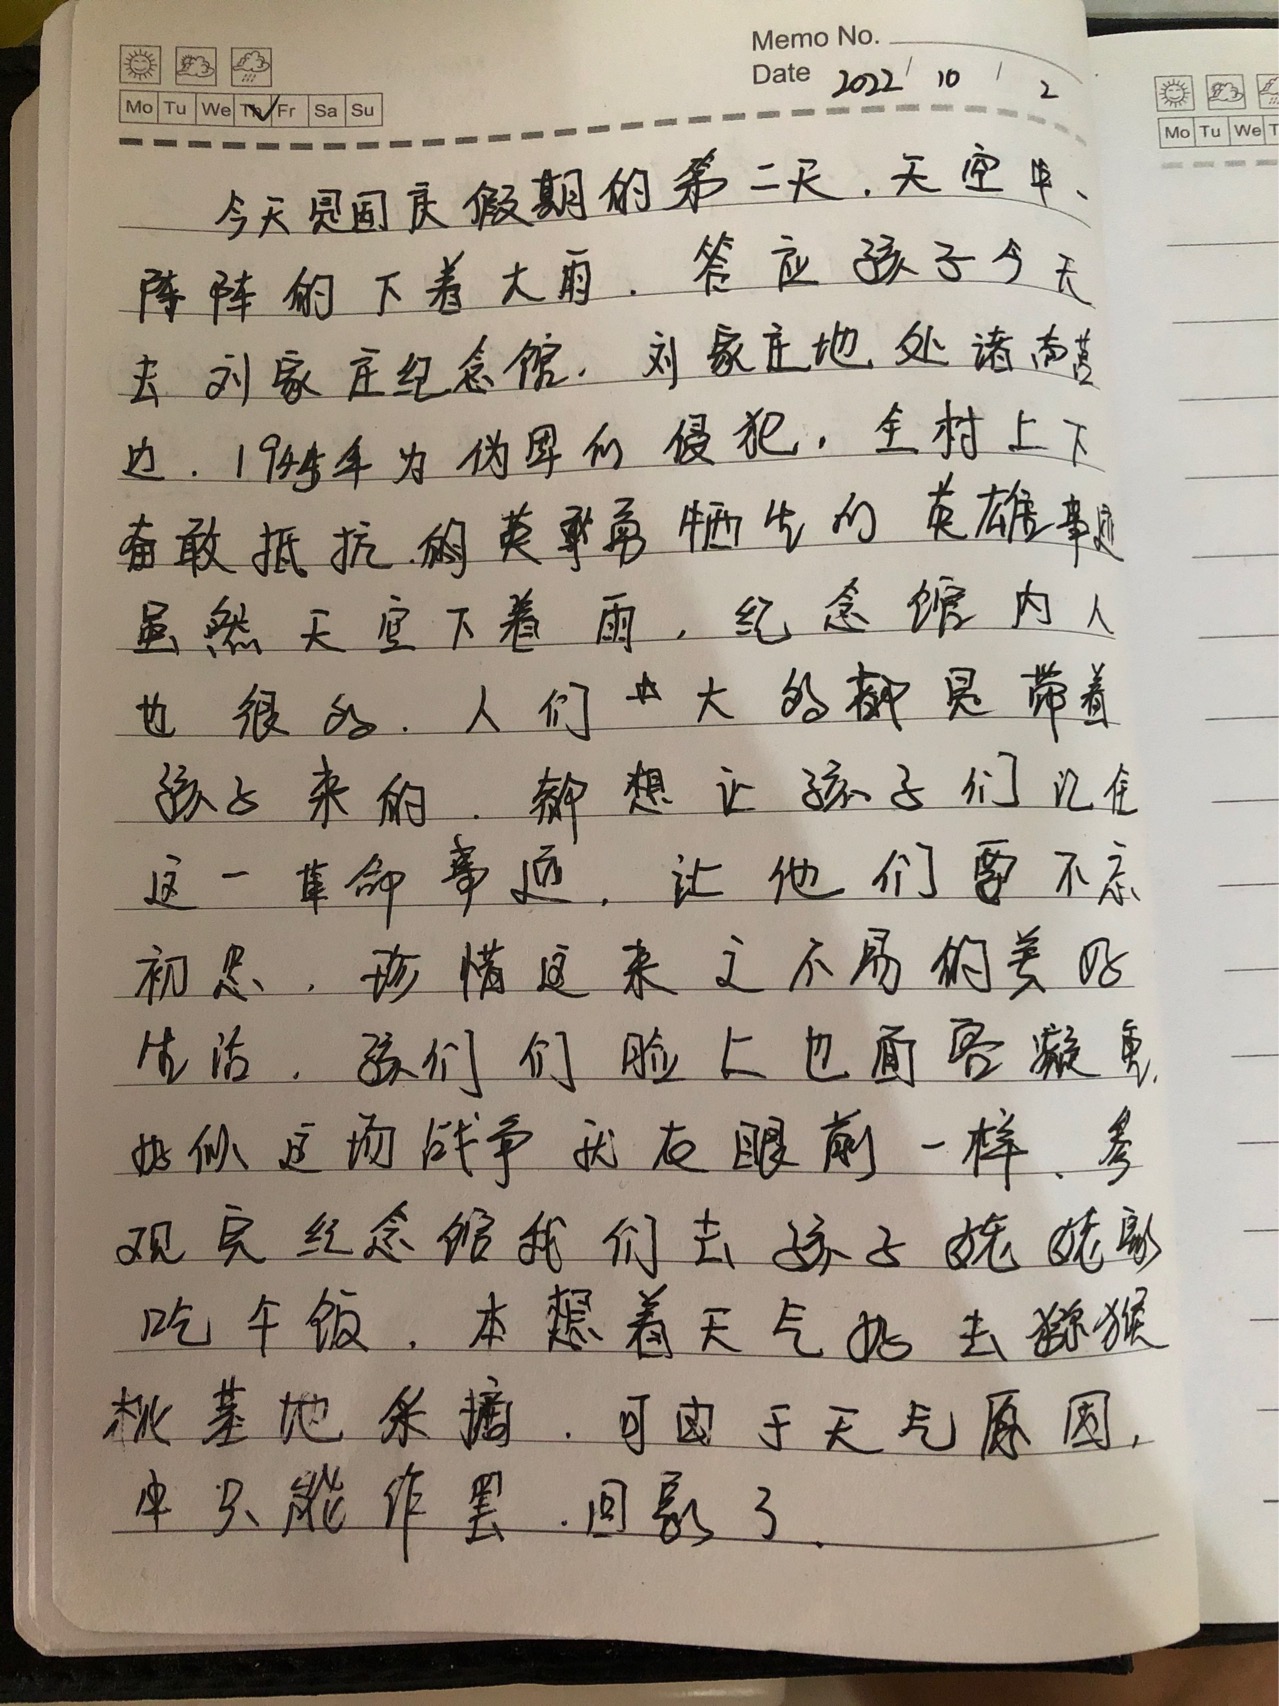 Memo No.
Date 2022 / 10 / 2
Mo Tu We Th Fr Sa Su
Mo Tu We T
今天是国庆假期的第二天,天空中、
阵阵的下着大雨.答应孩子今天
去刘家庄纪念馆.刘家庄地处诸
边.1945年为伪军的侵犯,全村上下
奋敢抵抗的英勇牺牲的英雄事迹
虽然天空下着雨,纪念馆内人
也很的.人们大的都是带着
孩子来的.都想让孩子们记住
这一革命事迹.让他们要不忘
初忠.珍惜这来之不易的美好
生活.孩们们脸上也面容凝重.
好似这场战争就在眼前一样、参
观完纪念馆我们去孩子姥姥家
吃午饭.本想着天气好去猕猴
桃基地采摘.可由于天气原因,
也只能作罢.回家了.